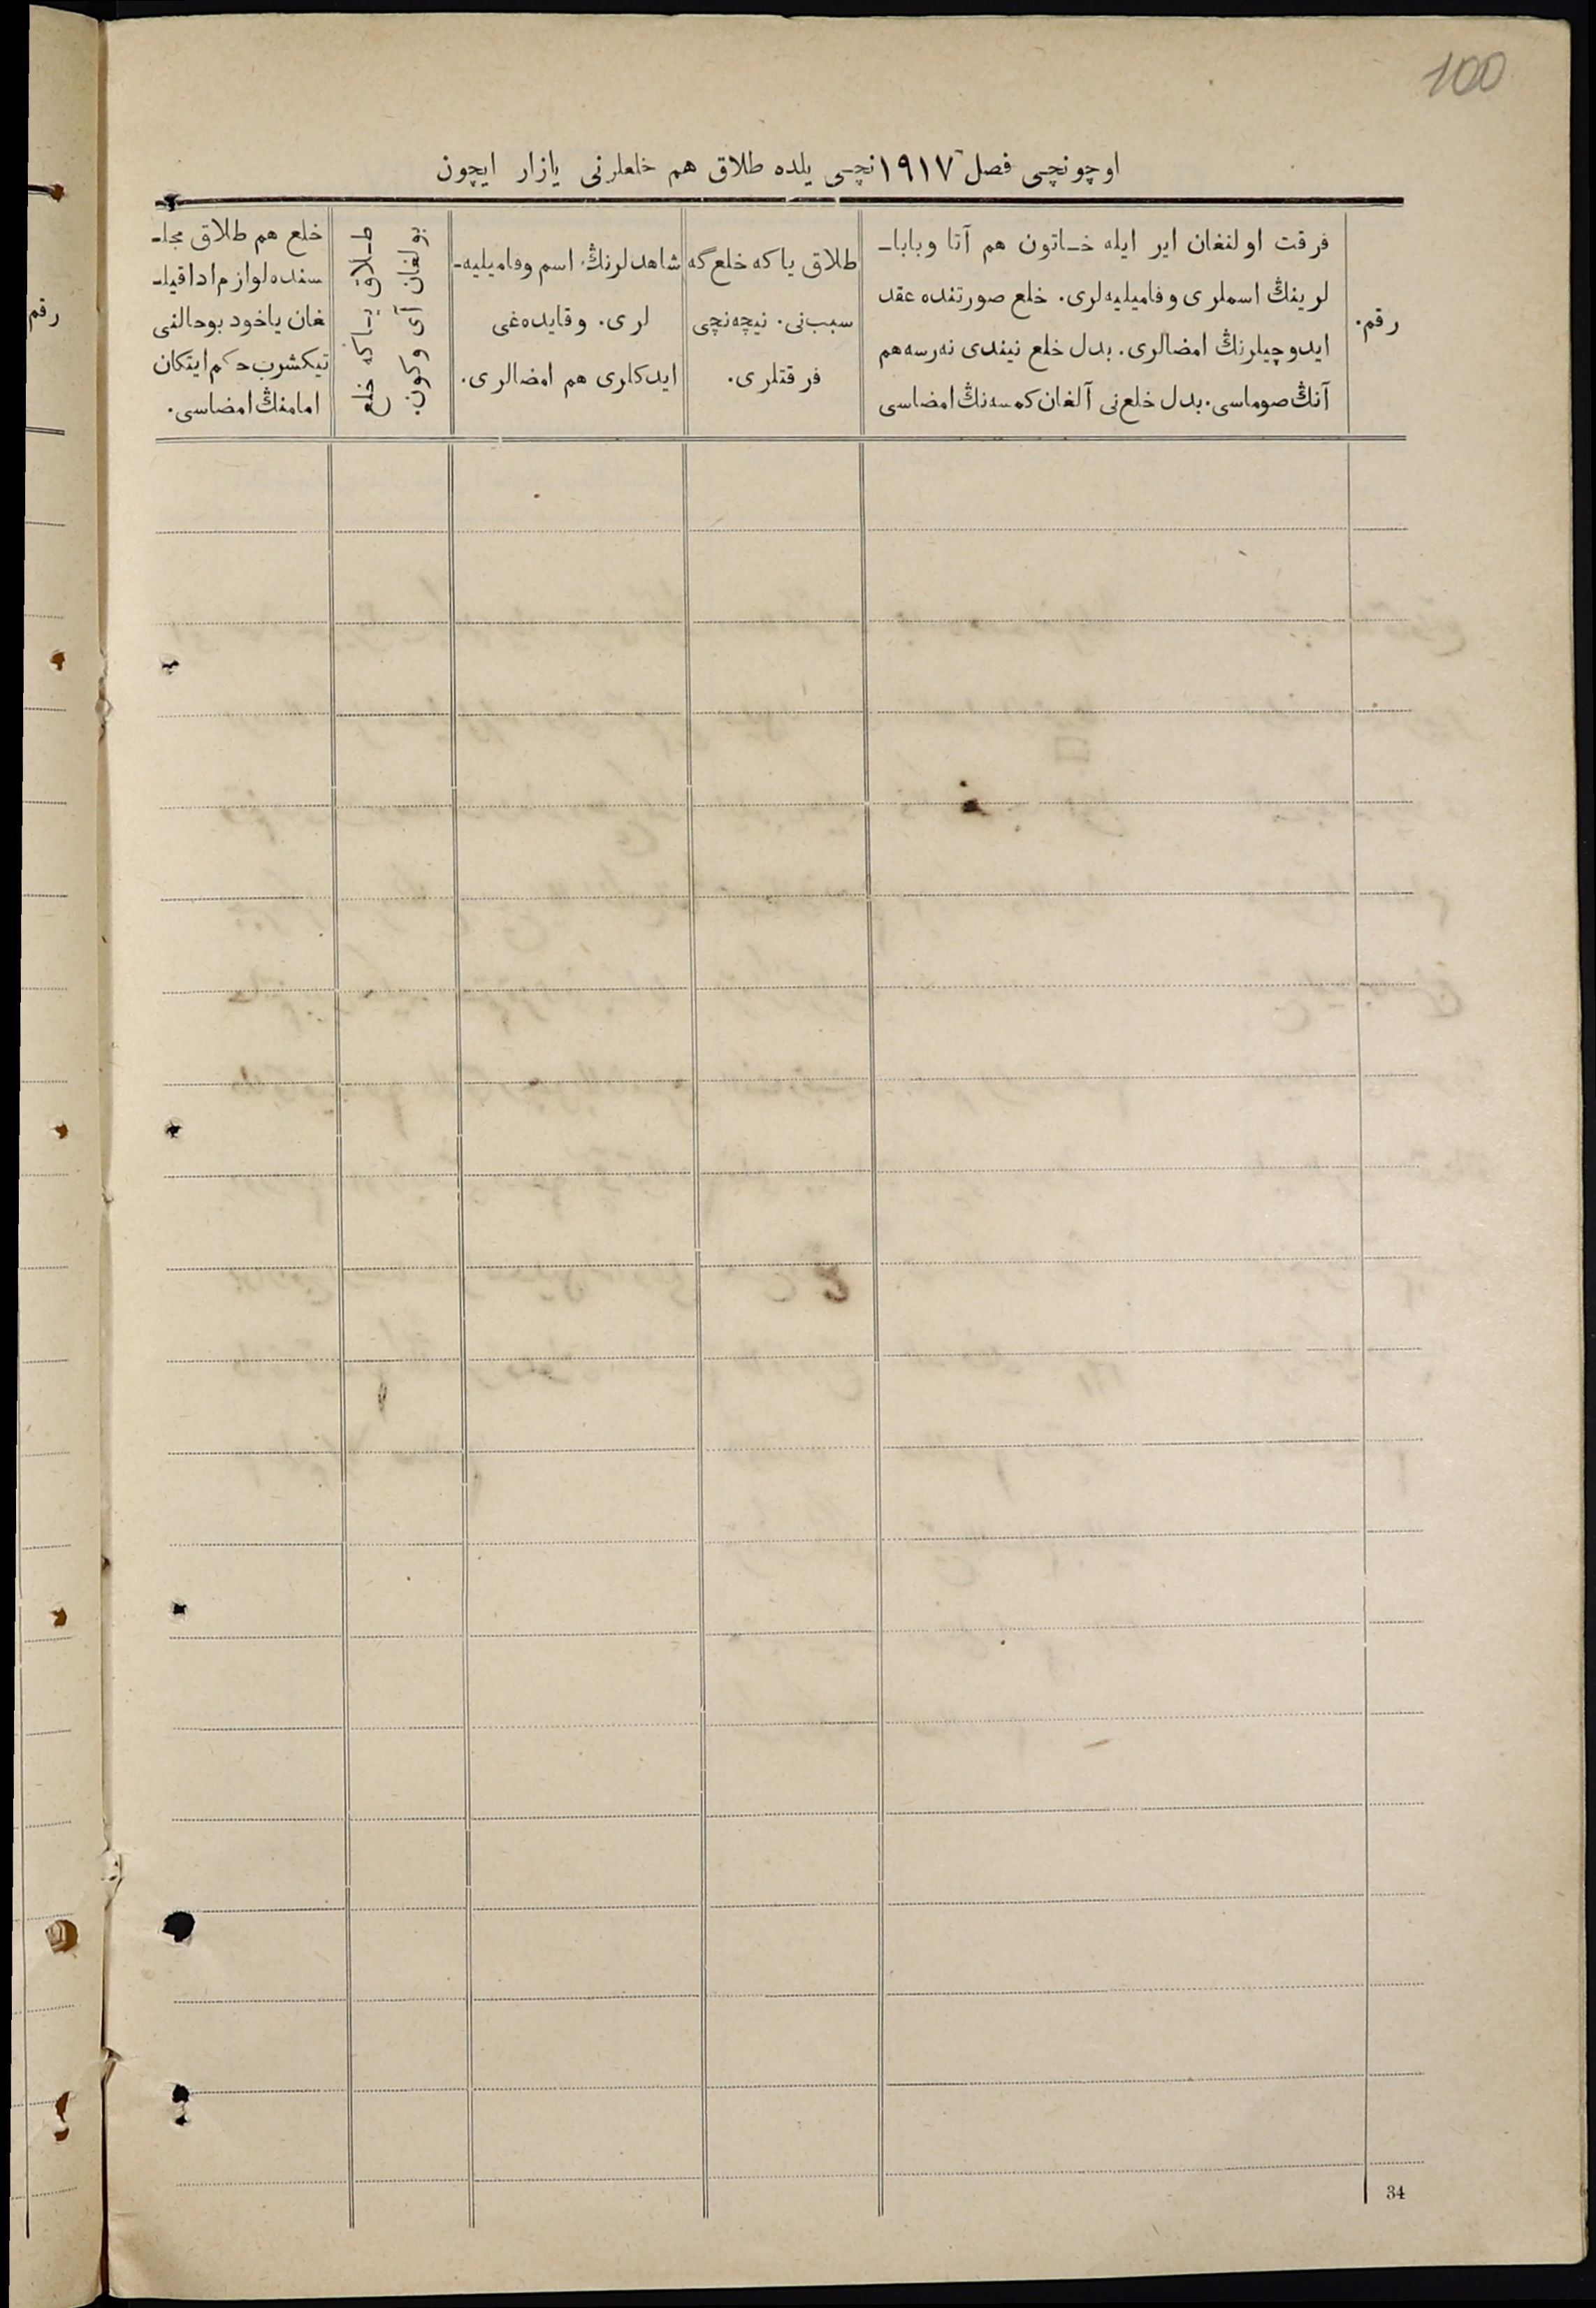 100
اوچونچی فصل ١٩١٧نچی یلده طلاق هم خلعلرنی یازار ایچون
رقم.
فرقت اولنغان ایر ایله خـاتون هم آتا وبابا-
لرینڭ اسملری وفامیلیه‌لری. خلع صورتنده عقد
ایدوچیلرنڭ امضالری. بدل خلع نیندی نه‌رسه هم
آنڭ صوماسی. بدل خلع‌نی آلغان کمسه‌نڭ امضاسی
طلاق یاکه خلع‌گه
سبب‌نی. نیچه‌نچی
فرقتلری.
شاهدلرنڭ اسم وفامیلیه-
لری. وقایده‌غی
ایدکلری هم امضالری.
طـلاق یـاکه خلع
بولغان آی وکون.
خلع هم طلاق مجلـ
سنده لوازم ادا قیلـ
غان یاخود بوحالنی
تیکشرب حکم ایتکان
امامنڭ امضاسی.
رقم
34